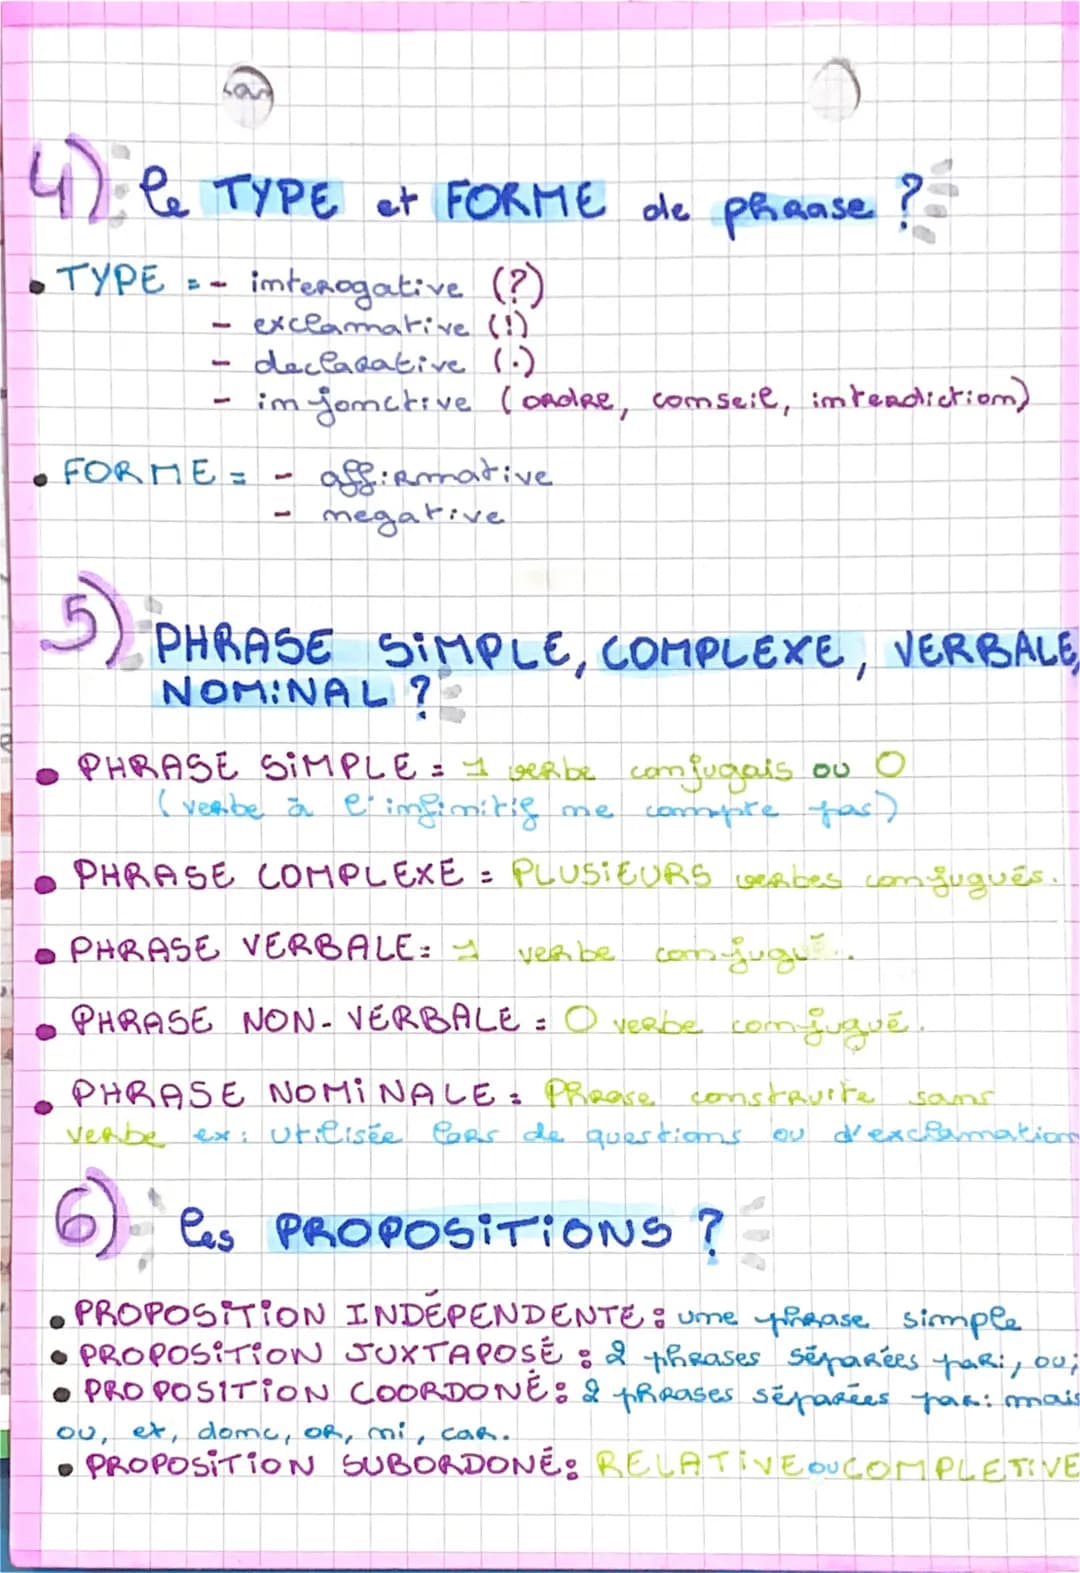 4) le TYPE et FORME de phrase ?
• TYPE = - interogative (?)
- exclamative (!)
- declarative (.)
- injonctive (ordre, conseil, interdiction)
• FORME = - affirmative
- negative
5) PHRASE SiMPLE, COMPLEXE, VERBALE,
NOMiNAL ?
• PHRASE SiMPLE = 1 verbe conjugais ou 0
(verbe à l'infinitif ne compte pas)
• PHRASE COMPLEXE = PLUSiEURS verbes conjugués.
• PHRASE VERBALE = 1 verbe conjugué.
• PHRASE NON-VERBALE = 0 verbe conjugué.
• PHRASE NOMiNALE = Phrase construite sans
verbe ex: utilisée lors de questions ou d'exclamation
6) les PROPOSiTiONS ?
• PROPOSiTiON INDÉPENDENTE : une phrase simple
• PROPOSiTiON JUXTAPOSÉ : 2 phrases séparées par: , ou ;
• PROPOSiTiON COORDONÉ : 2 phrases séparées par: mais
ou, et, donc, or, ni, car.
• PROPOSiTiON SUBORDONÉ : RELATiVE OU COMPLETiVE